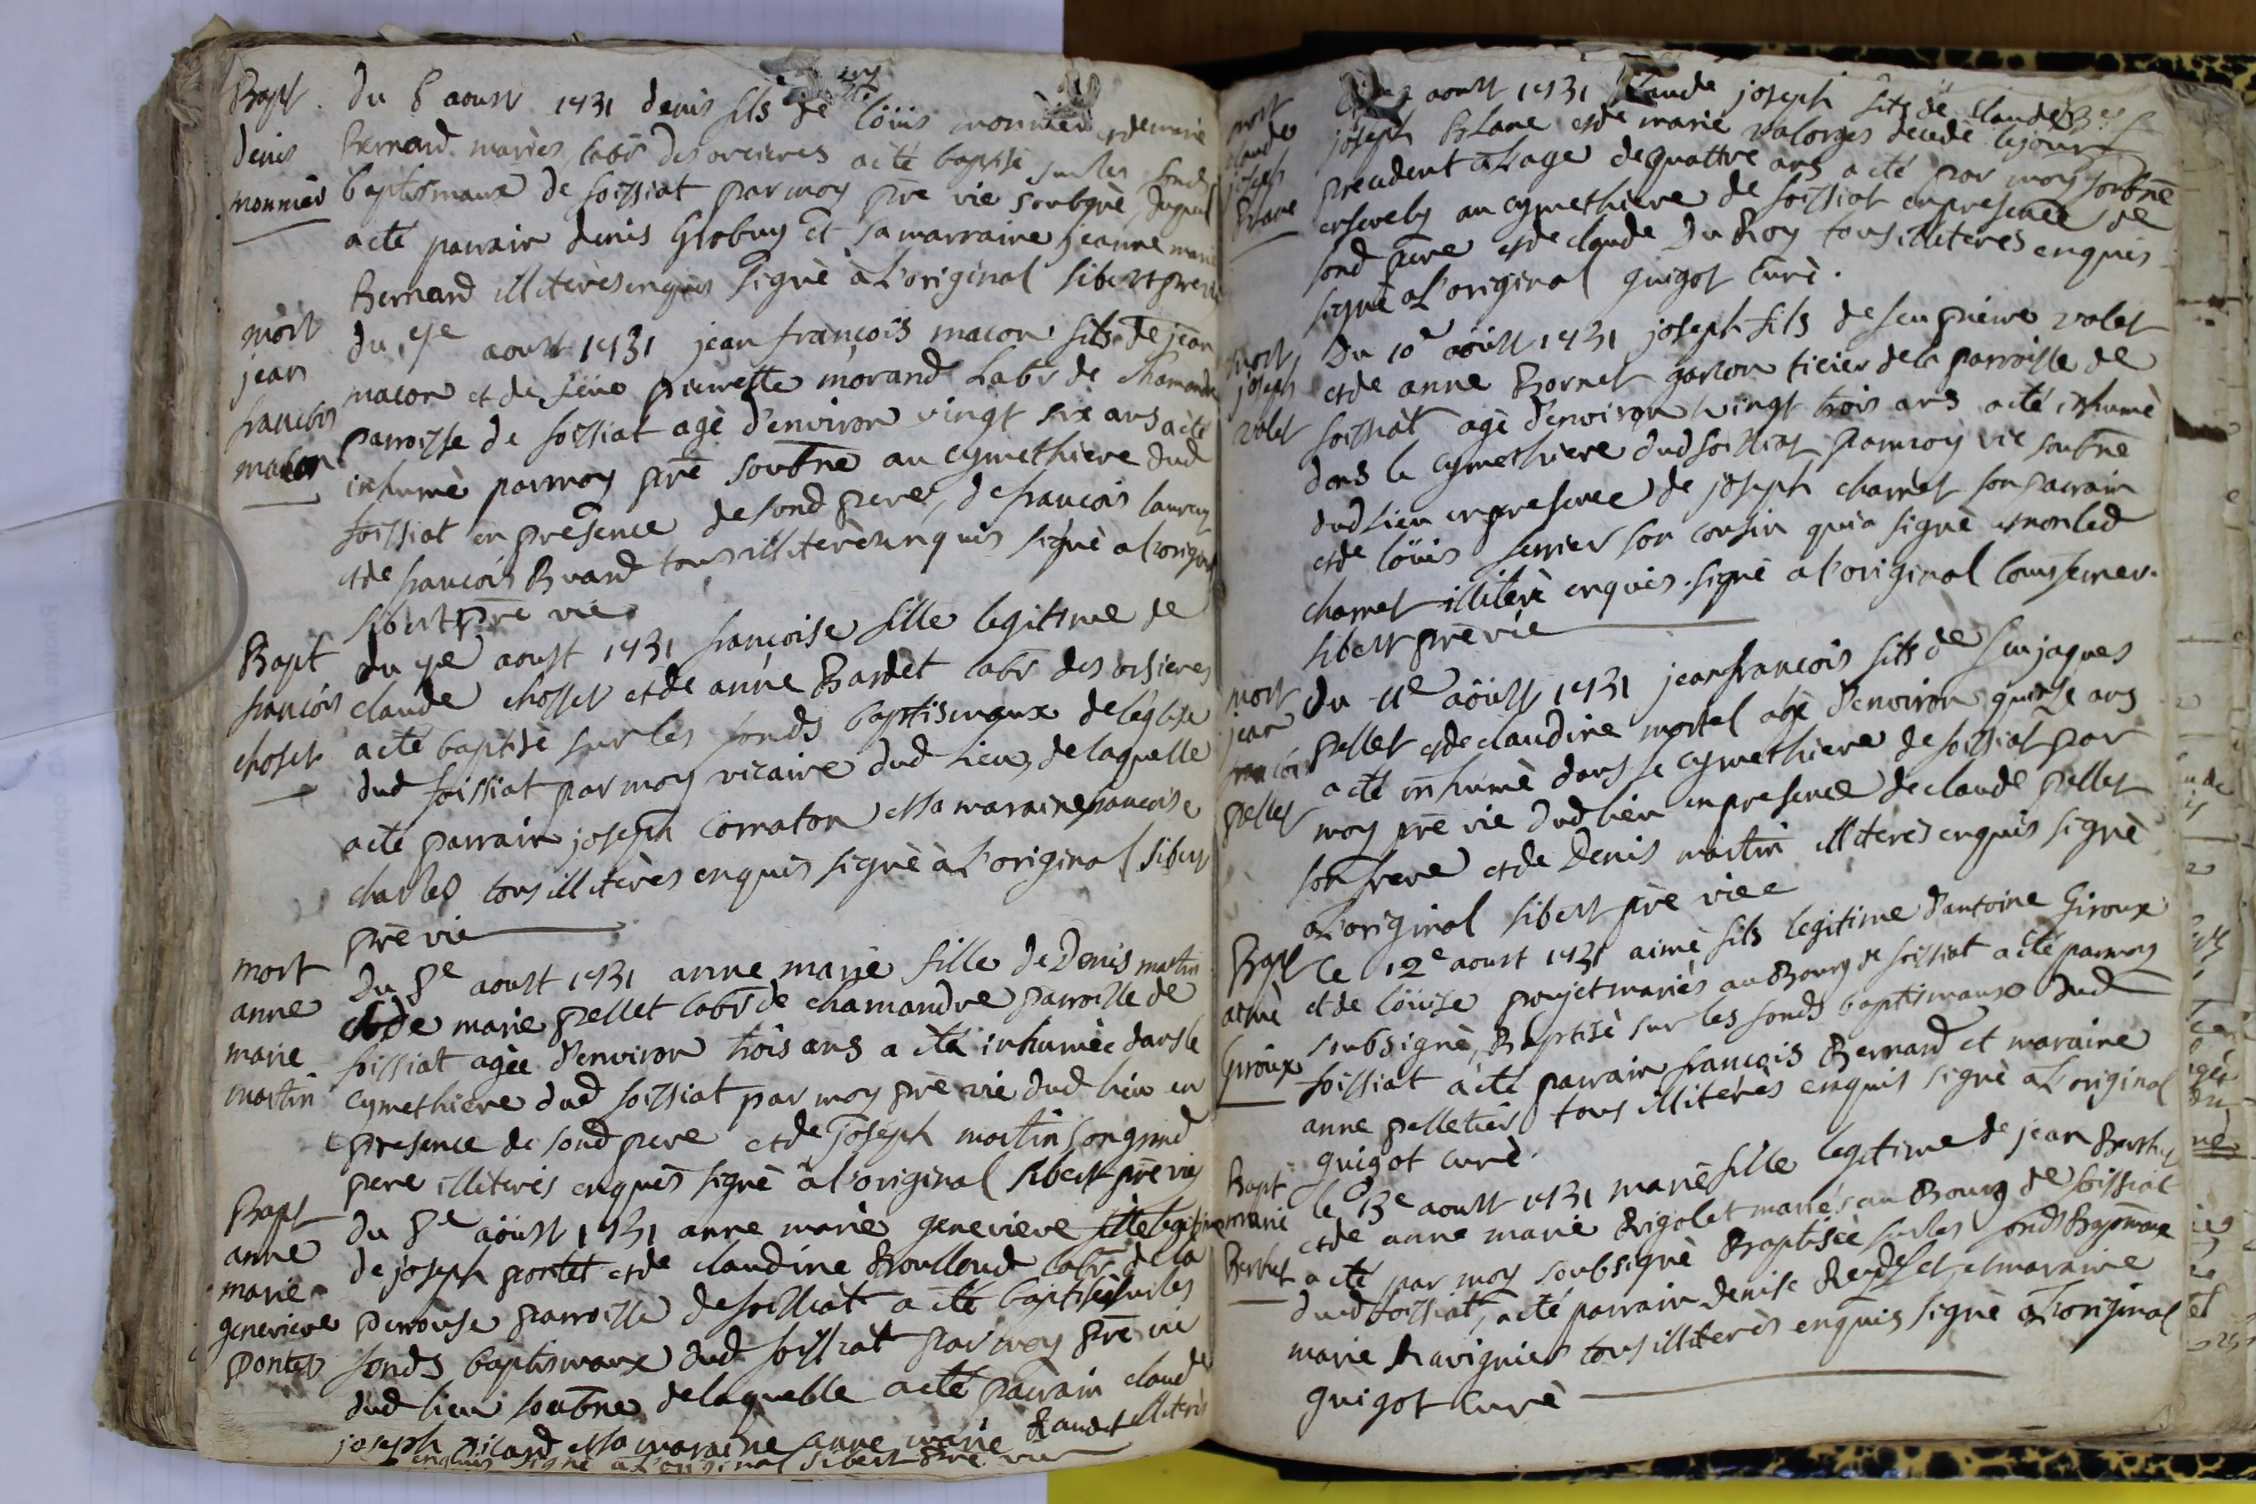 Bapt.
denis
monnier
du 8 aoust 1731 denis fils de Löüis monnier et de marie
Bernard mariés labr des orcieres a été baptisé sur les fonds
baptismaux de foissiat par moy pre vie soubgne duquel
a été parrain denis Grobuy et sa marraine jeanne marie
Bernard illiterès enquis signè à L'original sibert pre vie
mort
jean
francois
macon
du 7e aoust 1731 jean françois macon fils de jean
macon et de feüe pierrette morand Labr de Chamandre
parroisse de foissiat agè d'environ vingt six ans a été
inhumè par moy pre soubne au cymethiere dud
foissiat en presence de sond pere, de francois
et de francois Buard tous illiterès enquis signè a l'original
sibert pre vie
Bapt
francois
choset
du 7e aoust 1731 françoise fille legitime de
claude chosset et de anne Bardet labr des orsieres
a été baptisè sur les fonds baptismaux de leglise
dud foissiat par moy vicaire dud lieu, de laquelle
a été parrain joseph Corraton et sa maraine francoise
charles tous illiterès enquis signè à L'original sibert
pre vie
mort
anne
marie
martin
Du 8e aoust 1731 anne marie fille de Denis martin
et de marie pellet labr de chamandre parroisse de
foissiat agèe d'environ trois ans a été inhumèe dans le
cymethiere dud foissiat par moy pre vie dud lieu en
presence de sond pere et de joseph martin son grand
pere illiterés enquis signè à l'original sibert pre vie
Bapt
anne
marie
genevieve
pontet
du 8e aöüst 1731 anne marie genevieve fille legitime
de joseph pontet et de claudine Brouilloud labr de la
perrouse parroisse de foissiat a été baptisèe sur les
fonds baptismaux dud foissiat par moy pre vie
dud lieu soubne de laquelle a été parrain claude
joseph picard et sa maraine anne marie illiterés
enquis signè a L'original sibert pre vie
mort
claude
joseph
Blanc
aoust 1731 claude joseph fils de claude
joseph Blanc et de marie valorges decede le jour
precedent a L'age de quattre ans a été par moy soubne
ensevely au cymethiere de foissiat en presence de
sond pere et de claude Du Roy tous illiterés enquis
signè a L'original guigot curè.
mort
joseph
volet
Du 10e aöüst 1731 joseph fils de feu pierre volet
et de anne Bornet garcon ticier de la parroisse de
foissiat agè d'environ vingt trois ans a été inhumè
dans le cymethiere dud foissiat par moy vie soubne
dud lieu en presence de joseph charnet son parrain
et de löüis son cousin qui a signè et non led
charnet illiterè enquis. signè a l'original
sibert pre vie
mort
jean
francois
pellet
du 11e aöüst 1731 jean francois fils de feu jaques
pellet et de claudine mortel agè d'environ quinse ans
a été inhumè dans le cymethiere de foissiat par
moy pre vie dud lieu en presence de claude pellet
son frere et de Denis martin illiterès enquis signè
a L'original sibert pre vie
Bapt
aimè
Giroux
Ce 12e aoust 1731 aimè fils legitime d'antoine Giroux
et de löüise poujet mariès au Bourg de foissiat a été par moy
soubsignè, Baptisè sur les fonds baptismaux dud
foissiat a été parrain francois Bernard et maraine
anne pelletier tous illiterés enquis signè a L'original
guigot curè.
Bapt
marie
Berthet
le 13e aoust 1731 marie fille legitime de jean Berthet
et de anne marie Rigolet mariés au Bourg de foissiat
a été par moy soubsignè Baptisèe sur les fonds Baptismaux
dud foissiat, a été parrain denise et maraine
marie Ravignier tous illiterès enquis signè a L'original
guigot curè